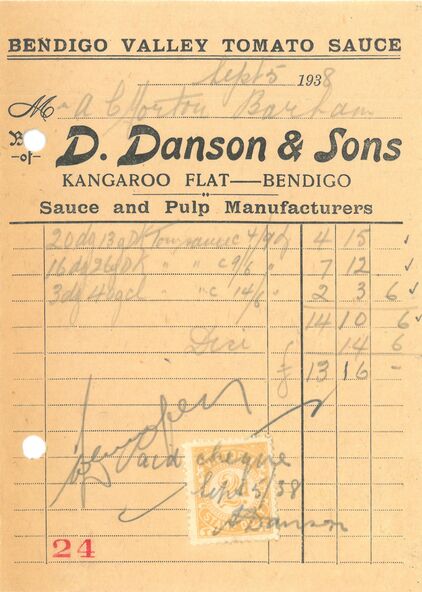 BENDIGO VALLEY TOMATO SAUCE
Sept 5 1938
Mr A C Morton Barham
D. DANSON & SONS
-of-
KANGAROO FLAT—BENDIGO
Sauce and Pulp Manufacturers
20dg 13gDK Tom sauce 4/9 dg 4 15
16dg 26gDK " " c 9/6 " 7 12
3dg 40gcl " " c 14/6 " 2 3 6
14 10 6
Disc 14 6
£ 13 16 -
Paid cheque
Sept 5/38
2
STAMP
A Danson
24